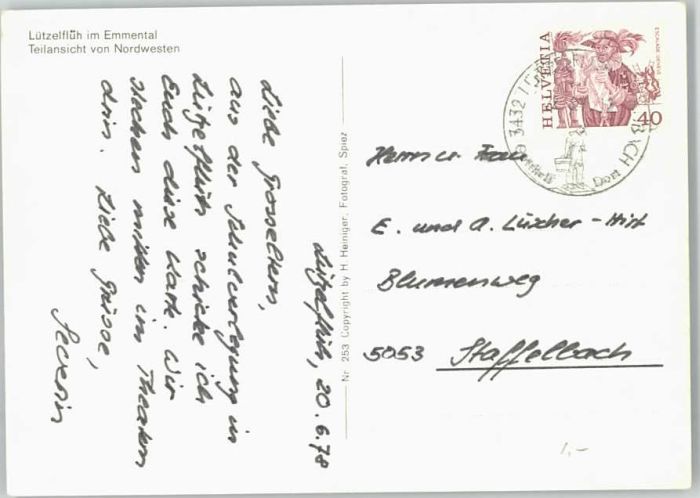 Lützelflüh im Emmental
Teilansicht von Nordwesten
Lützelflüh, 20.6.78
Liebe Grosseltern,
aus der Schulverlegung in
Lützelflüh schicke ich
Euch diese Karte. Wir
stecken mitten im Theatern
drin. Liebe Grüsse,
Severin
Nr. 253 Copyright by H. Heiniger, Fotograf, Spiez
HELVETIA
ESCALADE GENÈVE
40
3432
Dorf
Herrn u. Frau
E. und A. Lüscher-Hirt
Blumenweg
5053 Staffelbach
1,-